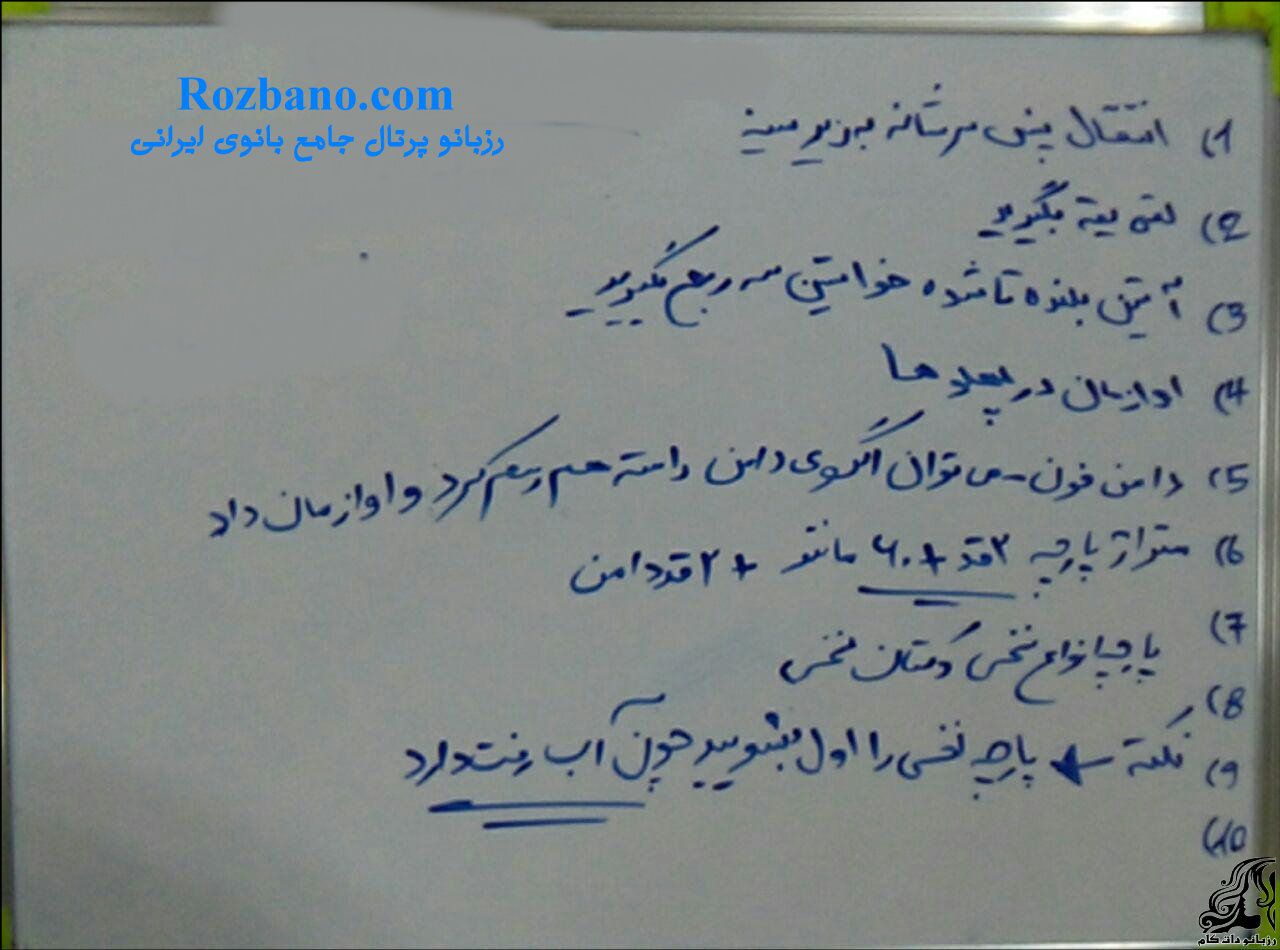 Rozbano.com
رزبانو پرتال جامع بانوی ایرانی
1) انتقال پنس سرشانه به زیر سینه
2) لقی یقه بگیرید
3) آستین بلنده تا شده خواستین سه ربع بگیرید
4) اوازمان در پهلوها
5) دامن فون می توان الگوی دامن راسته هم رسم کرد و اوازمان داد
6) متراژ پارچه ۲ قد + ۶۰ مانتو + ۲ قد دامن
7) پارچه انواع نخی کتان نخی
8)
9) نکته ← پارچه نخی را اول بشویید چون آب رفت دارد
10)
رزبانو دات کام